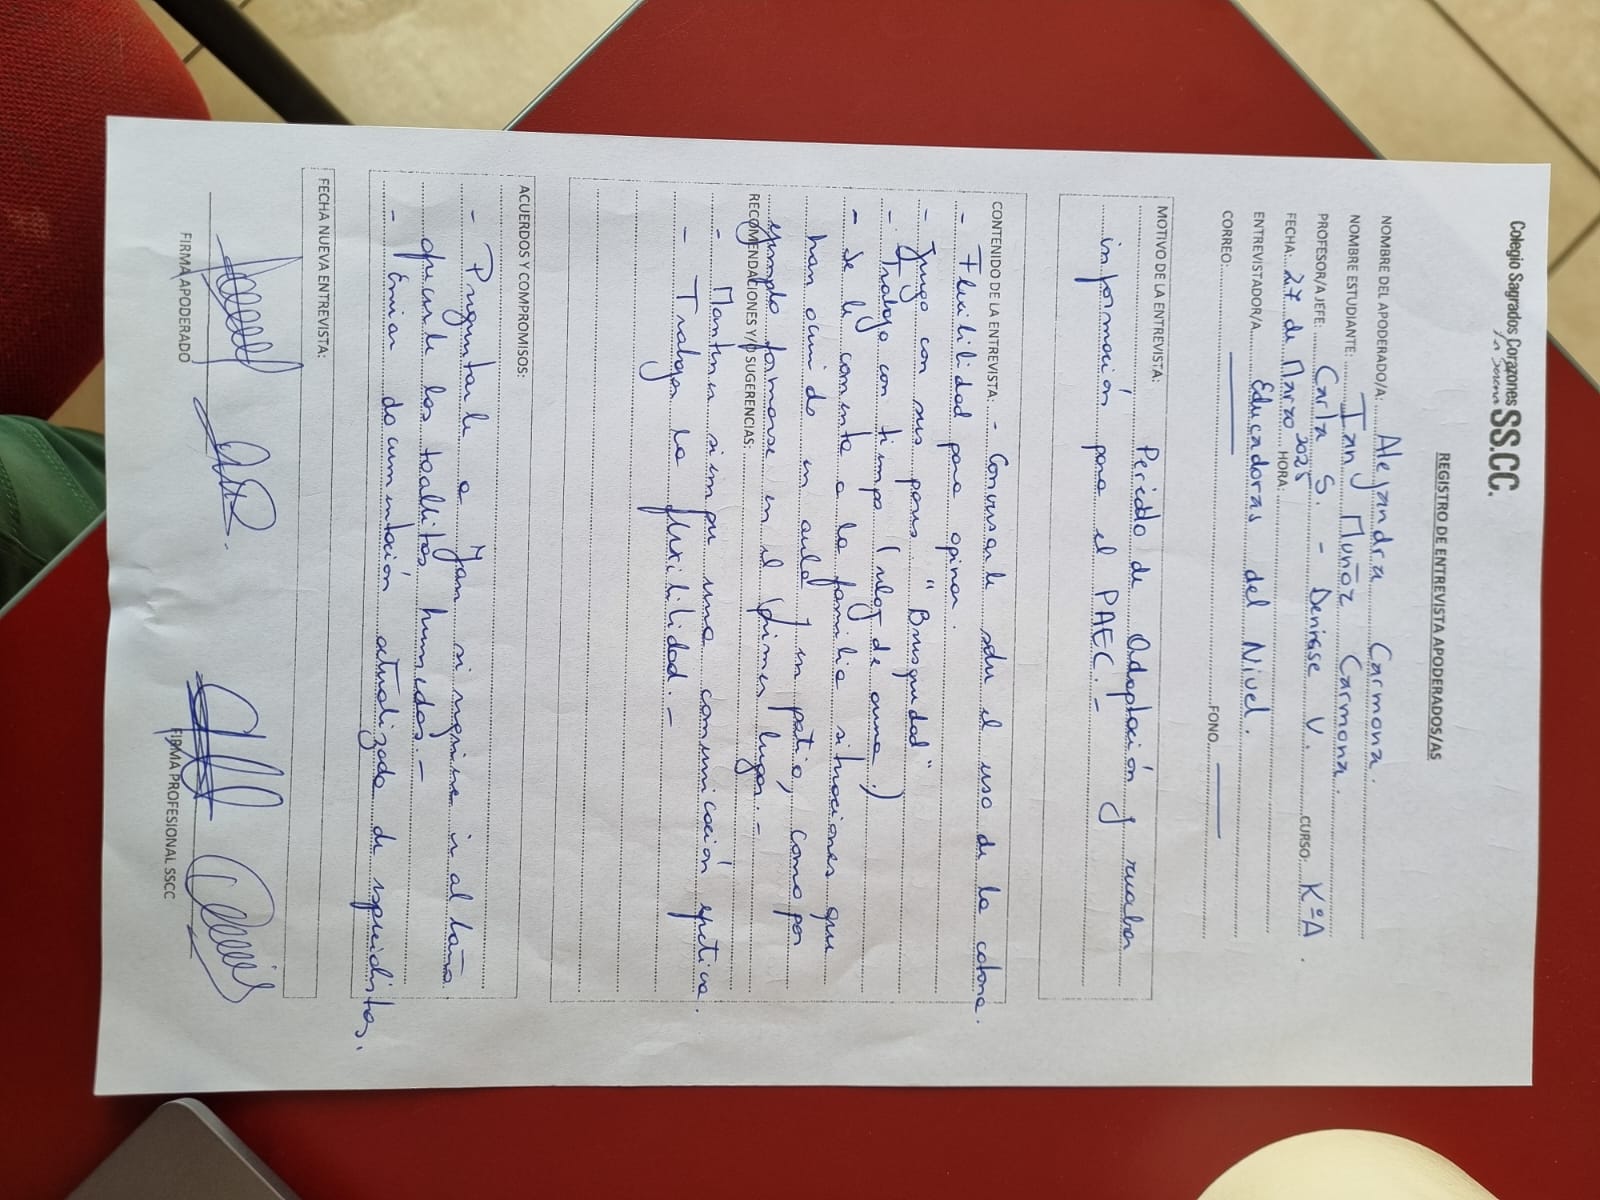 Colegio Sagrados Corazones SS.CC.
La Serena
REGISTRO DE ENTREVISTA APODERADOS/AS
NOMBRE DEL APODERADO/A: Alejandra Carmona.
NOMBRE ESTUDIANTE: Ian Muñoz Carmona.
PROFESOR/A JEFE: Carla S. - Denisse V. CURSO: KºA.
FECHA: 27 de Marzo 2025 HORA:
ENTREVISTADOR/A Educadoras del Nivel.
CORREO: FONO
MOTIVO DE LA ENTREVISTA: Periodo de Adaptación y recabar
información para el PAEC.-
CONTENIDO DE LA ENTREVISTA: - Conversarle sobre el uso de la cotona.
- Flexibilidad para opinar.
- Juego con sus pares "Brusquedad"
- Trabajo con tiempo (reloj de arena.)
- Se le comenta a la familia situaciones que
han ocurrido en aula y en patio, como por
ejemplo formarse en el primer lugar.-
RECOMENDACIONES Y/O SUGERENCIAS:
- Mantener siempre una comunicación efectiva.
- Trabajar la flexibilidad.-
ACUERDOS Y COMPROMISOS:
- Preguntarle a Ian si requiere ir al baño
ofrecerle las toallitas humedas.-
- Enviar documentación actualizada de especialistas.
FECHA NUEVA ENTREVISTA:
FIRMA APODERADO FIRMA PROFESIONAL SSCC